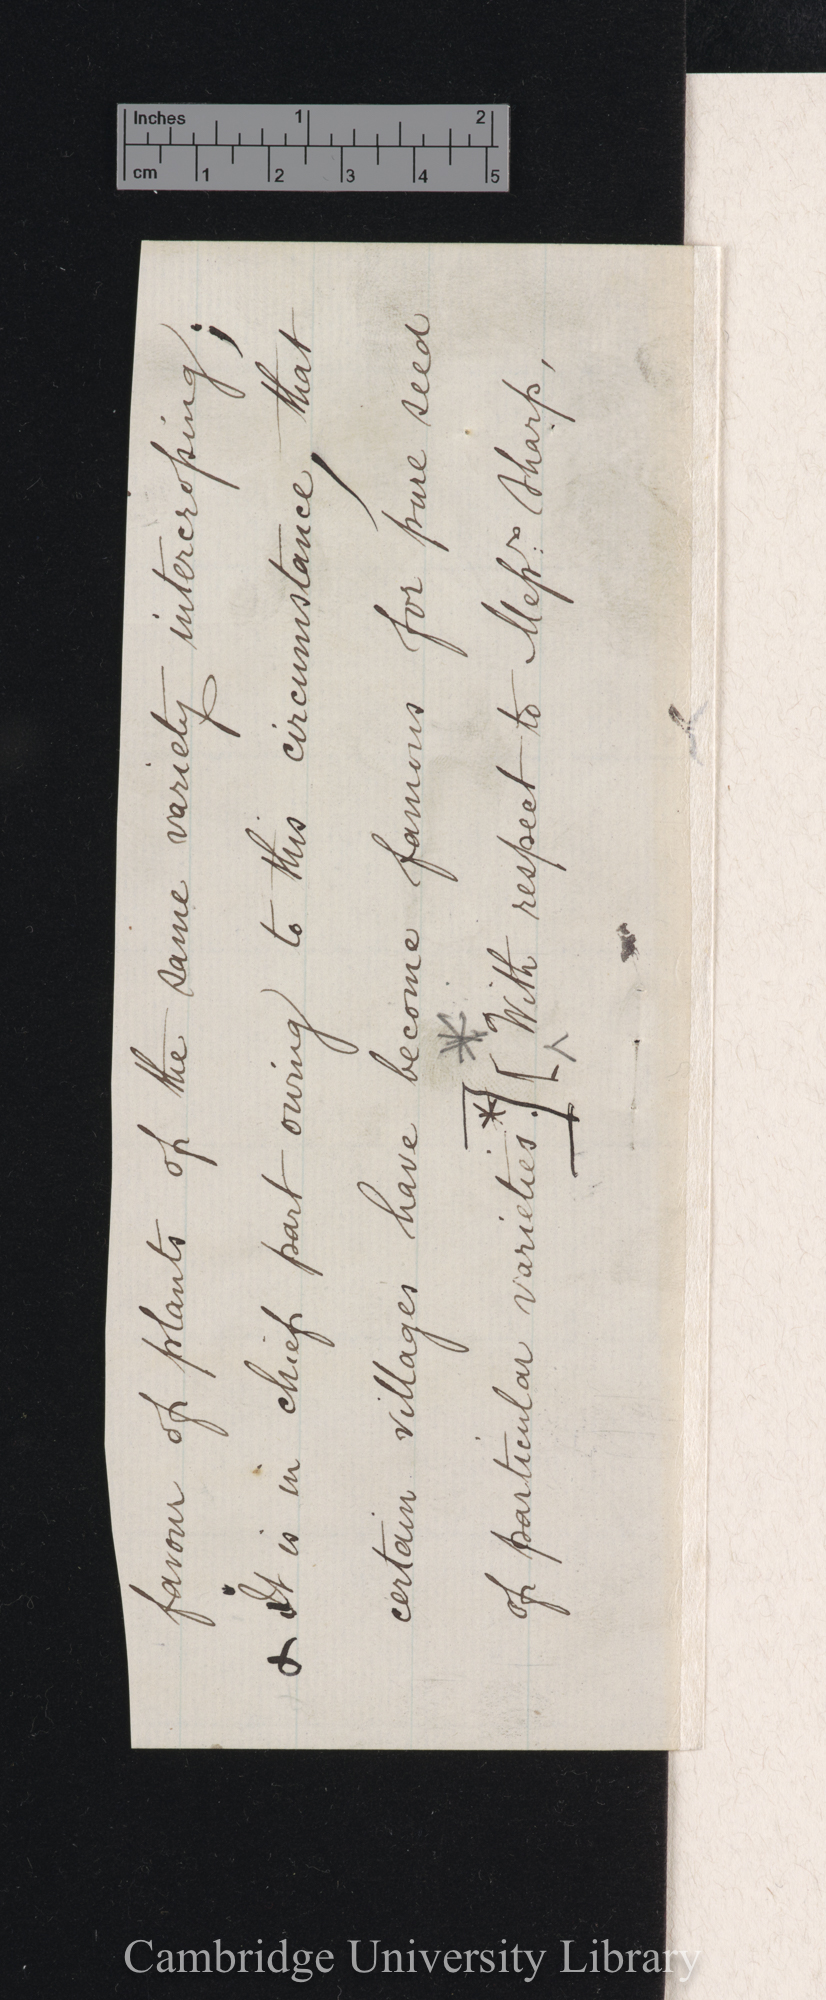 Inches 1 2
cm 1 2 3 4 5
favour of plants of the same variety intercrossing;
& it is in chief part owing to this circumstance, that
certain villages have become famous for pure seed
*
of particular varieties.*] [With respect to Messrs Sharp,
Cambridge University Library